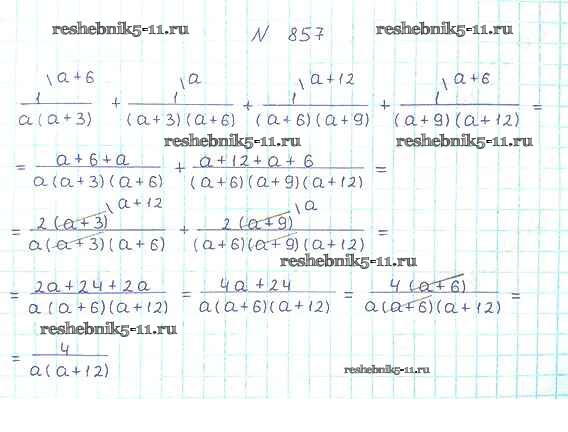 reshebnik5-11.ru N 857 reshebnik5-11.ru
\a+6 \a \a+12 \a+6
1/(a(a+3)) + 1/((a+3)(a+6)) + 1/((a+6)(a+9)) + 1/((a+9)(a+12)) =
reshebnik5-11.ru reshebnik5-11.ru
= (a+6+a)/(a(a+3)(a+6)) + (a+12+a+6)/((a+6)(a+9)(a+12)) =
\a+12 \a
= 2(a+3)/(a(a+3)(a+6)) + 2(a+9)/((a+6)(a+9)(a+12)) =
reshebnik5-11.ru
= (2a+24+2a)/(a(a+6)(a+12)) = (4a+24)/(a(a+6)(a+12)) = 4(a+6)/(a(a+6)(a+12)) =
reshebnik5-11.ru
= 4/(a(a+12))
reshebnik5-11.ru